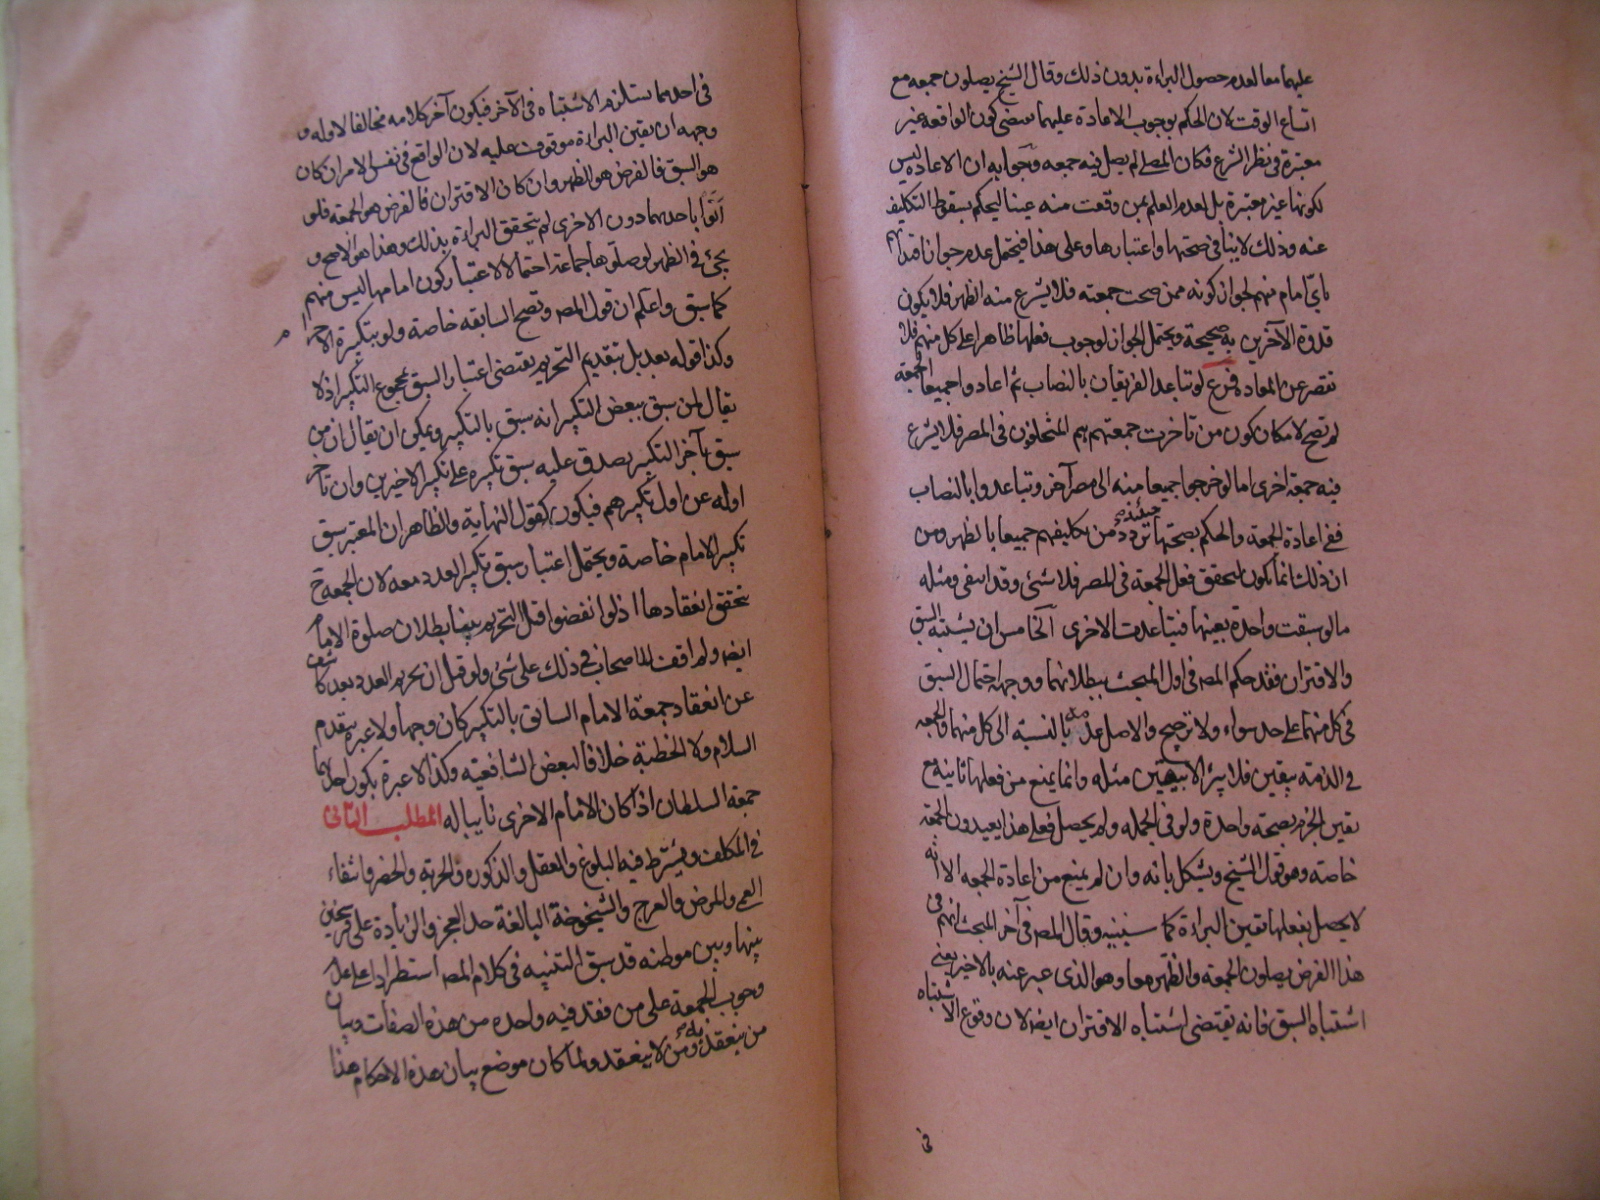 عليهما معا لعدم حصول البراءة بدون ذلك وقال الشيخ يصلون جمعه مع
اتساع الوقت لان الحكم بوجوب الاعادة عليهما يقتضى كون الواقعه غير
معتبرة فى نظر الشرع فكان المصر لم يصل فيه جمعه وجوابه ان الاعاده ليس
لكونها غير معتبرة بل لعدم العلم بمن وقعت منه عينا ليحكم بسقوط التكليف
عنه وذلك لا ينافى صحتها واعتبارها وعلى هذا فيحتمل عدم جواز اقتدائهم
باىّ امام منهم لجواز كونه ممن صحت جمعته فلا يشرع منه الظهر فلا يكون
قدوة الآخرين به صحيحة ويحتمل الجواز لوجوب فعلها ظاهرا على كل منهم فلا
تقصر عن المعاده فرع لو تباعد الفريقان بالنصاب ثم اعادوا جميعا الجمعة
لم تصح لامكان كون من تاخرت جمعتهم هم المتخلفون فى المصر فلا يشرع
فيه جمعة اخرى اما لو خرجوا جميعا منه الى مصر آخر وتباعدوا بالنصاب
ففى اعادة الجمعة والحكم بصحتها حينئذ تردد من تكليفهم جميعا بالظهر ومن
ان ذلك انما يكون لتحقق فعل الجمعة فى المصر فلا شئ وقد انتفى ومثله
ما لو سبقت واحدة بعينها فتباعدت الاخرى الخامس ان يشتبه السبق
والاقتران فقد حكم المصه فى اول المبحث ببطلانهما ووجهه احتمال السبق
فى كل منهما على حد سواء ولا ترجيح والاصل عدمه بالنسبة الى كل منهما والجمعه
فى الذمة بيقين فلا يبرؤ الا بيقين مثله وانما يمنع من فعلها ثانية مع
تيقن الجزم بصحة واحدة ولو فى الجمله ولم يحصل فعلى هذا يعيدون الجمعة
خاصة وهو قول الشيخ ويشكل بانه وان لم يمنع من اعادة الجمعه الا انه
لا يحصل بفعلها تيقن البراءة كما سنبينه وقال المصه فى آخر المبحث انهم فى
هذا الفرض يصلون الجمعة والظهر معا وهو الذى عبر عنه بالاخير يعنى
اشتباه السبق فانه يقتضى اشتباه الاقتران ايضه لان وقوع الاشتباه
فى
فى احدهما يستلزم الاشتباه فى الآخر فيكون آخر كلامه مخالفا لاوله و
وجهه ان يقين البراءة موقوف عليه لان الواقع فى نفس الامر ان كان
هو السبق فالفرض هو الظهر وان كان الاقتران فالفرض هو الجمعة فلو
اتوا باحدهما دون الاخرى لم يتحقق البراءة بذلك وهذا هو الاصح و
يجئ فى الظهر لو صلّوها جماعة احتمال اعتبار كون امامها ليس منهم
كما سبق واعلم ان قول المصه وتصح السابقه خاصة ولو بتكبيرة الاحرام
وكذا قوله بعد بل بتقديم التحريم يقتضى اعتبار السبق بمجموع التكبير اذ لا
يقال لمن سبق ببعض التكبير انه سبق بالتكبير ويمكن ان يقال ان من
سبق بآخر التكبير يصدق عليه سبق تكبيره على تكبير الاخيرين وان تاخر
اوله عن اول تكبيرهم فيكون كقول النهاية والظاهر ان المعتبر سبق
تكبير الامام خاصة ويحتمل اعتبار سبق تكبير العدد معه لان الجمعة ح
يتحقق انعقادها اذ لو انفضوا قبل التحريم بطلان صلوة الامام
ايضه ولم اقف للاصحاب فى ذلك على شئ ولو قيل ان تحريم العدد بعد كاشف
عن انعقاد جمعة الامام السابق بالتكبير كان وجها ولا عبرة بتقدم
السلام ولا الخطبة خلافا لبعض الشافعيه وكذا لا عبرة بكون احدهما
جمعة السلطان اذا كان الامام الاخرى نايبا له المطلب الثانى
فى المكلف ويشترط فيه البلوغ والعقل والذكوره والحرية والحضر وانتفاء
العمى والمرض والعرج والشيخوخة البالغة حد العجز والزيادة على فرسخين
بينها وبين موطنه قد سبق التنبيه فى كلام المصه استطرادا على عدم
وجوب الجمعة على من فقد فيه واحده من هذه الصفات وبيان
من ينعقد به ومن لا ينعقد ولما كان موضع بيان هذه الاحكام هنا